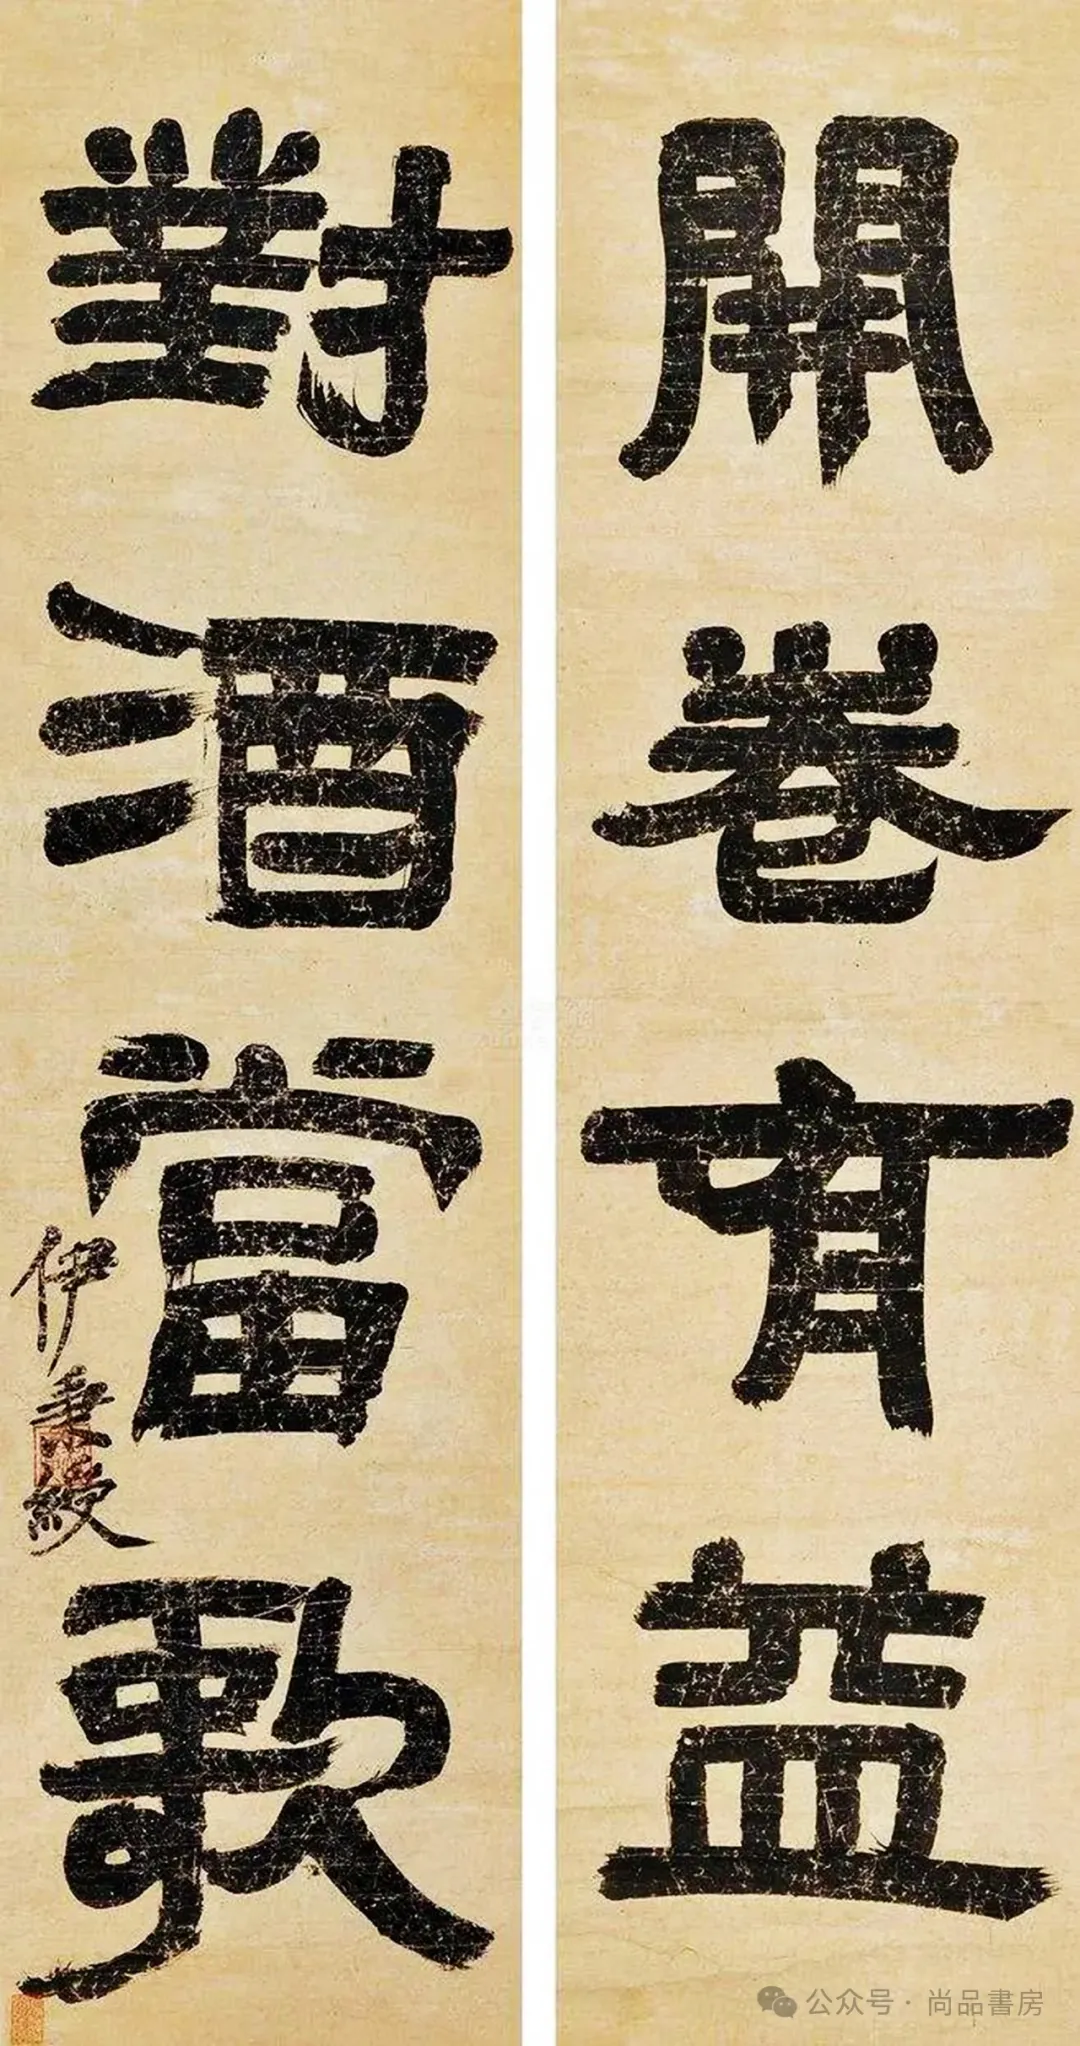 開卷有益
對酒當歌
伊秉綬
公众号·尚品書房